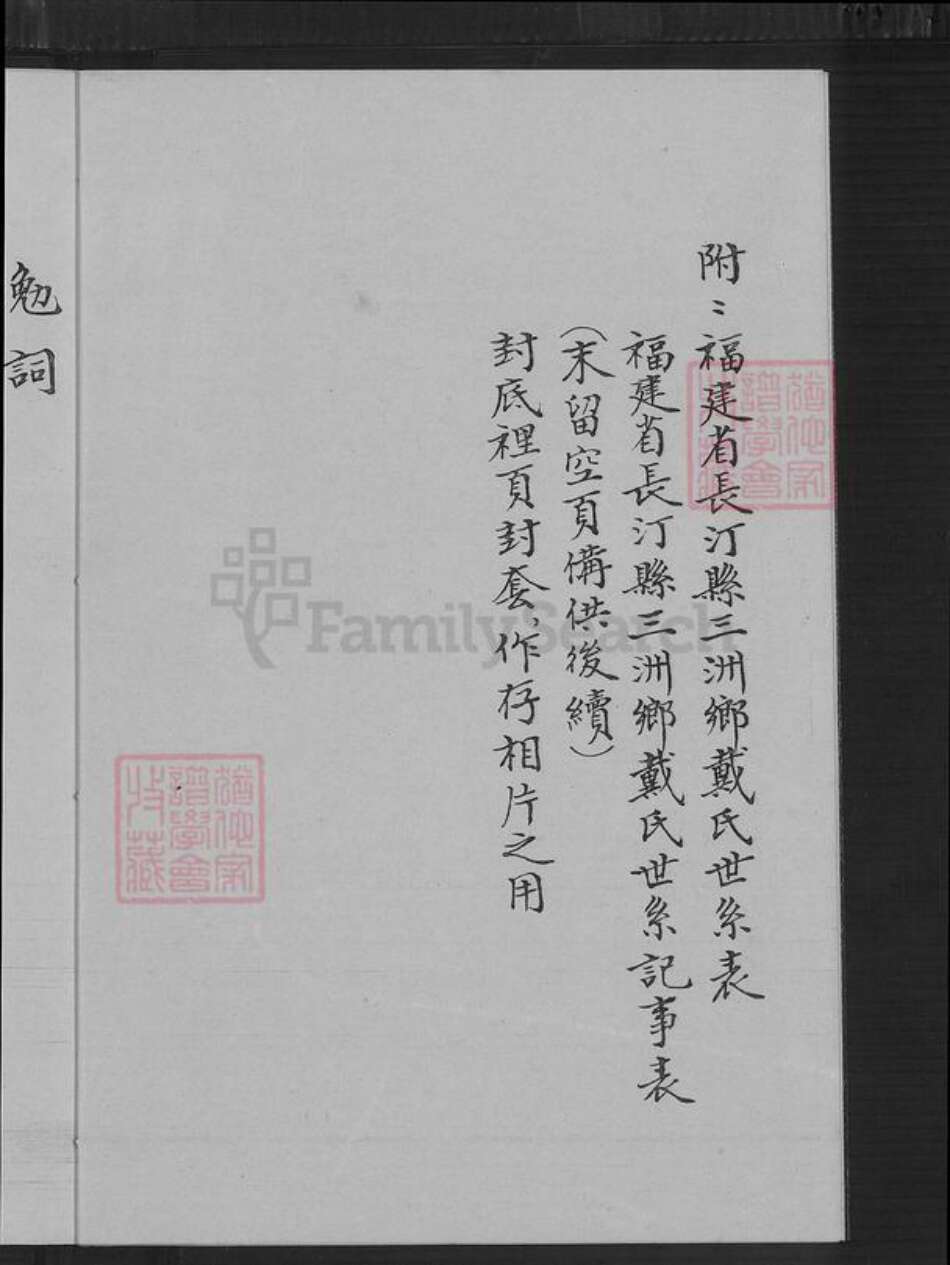 附：福建省長汀縣三洲鄉戴氏世系表
福建省長汀縣三洲鄉戴氏世系記事表
（末留空頁備供後續）
封底裡頁封套，作存相片之用
勉詞
FamilySearch
譜學會
收藏